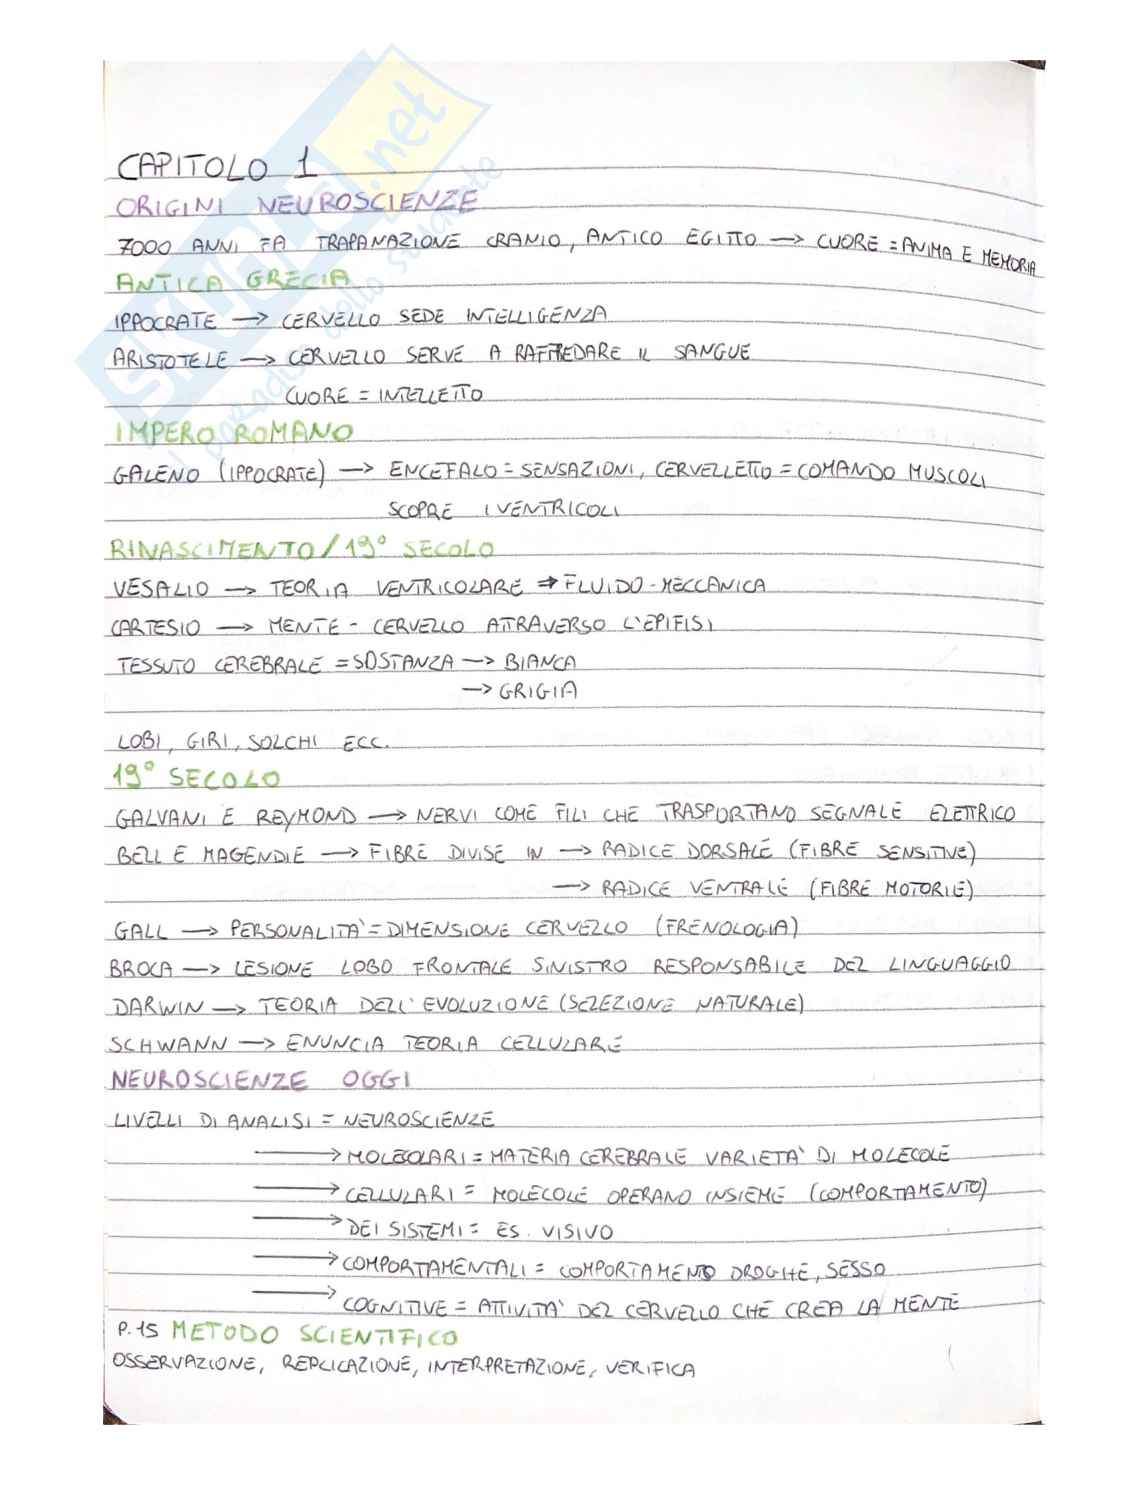 CAPITOLO 1
ORIGINI NEUROSCIENZE
7000 ANNI FA TRAPANAZIONE CRANIO, ANTICO EGITTO —> CUORE = ANIMA E MEMORIA
ANTICA GRECIA
IPPOCRATE —> CERVELLO SEDE INTELLIGENZA
ARISTOTELE —> CERVELLO SERVE A RAFFREDARE IL SANGUE
CUORE = INTELLETTO
IMPERO ROMANO
GALENO (IPPOCRATE) —> ENCEFALO = SENSAZIONI, CERVELLETTO = COMANDO MUSCOLI
SCOPRE I VENTRICOLI
RINASCIMENTO/19° SECOLO
VESALIO —> TEORIA VENTRICOLARE => FLUIDO-MECCANICA
CARTESIO —> MENTE - CERVELLO ATTRAVERSO L'EPIFISI
TESSUTO CEREBRALE = SOSTANZA —> BIANCA
—> GRIGIA
LOBI, GIRI, SOLCHI ECC.
19° SECOLO
GALVANI E REYMOND —> NERVI COME FILI CHE TRASPORTANO SEGNALE ELETTRICO
BELL E MAGENDIE —> FIBRE DIVISE IN —> RADICE DORSALE (FIBRE SENSITIVE)
—> RADICE VENTRALE (FIBRE MOTORIE)
GALL —> PERSONALITA' = DIMENSIONE CERVELLO (FRENOLOGIA)
BROCA —> LESIONE LOBO FRONTALE SINISTRO RESPONSABILE DEL LINGUAGGIO
DARWIN —> TEORIA DELL'EVOLUZIONE (SELEZIONE NATURALE)
SCHWANN —> ENUNCIA TEORIA CELLULARE
NEUROSCIENZE OGGI
LIVELLI DI ANALISI = NEUROSCIENZE
—> MOLECOLARI = MATERIA CEREBRALE VARIETA' DI MOLECOLE
—> CELLULARI = MOLECOLE OPERANO INSIEME (COMPORTAMENTO)
—> DEI SISTEMI = ES. VISIVO
—> COMPORTAMENTALI = COMPORTAMENTO DROGHE, SESSO
—> COGNITIVE = ATTIVITA' DEL CERVELLO CHE CREA LA MENTE
P.15 METODO SCIENTIFICO
OSSERVAZIONE, REPLICAZIONE, INTERPRETAZIONE, VERIFICA
SKUOLA.net
il paradiso dello studente